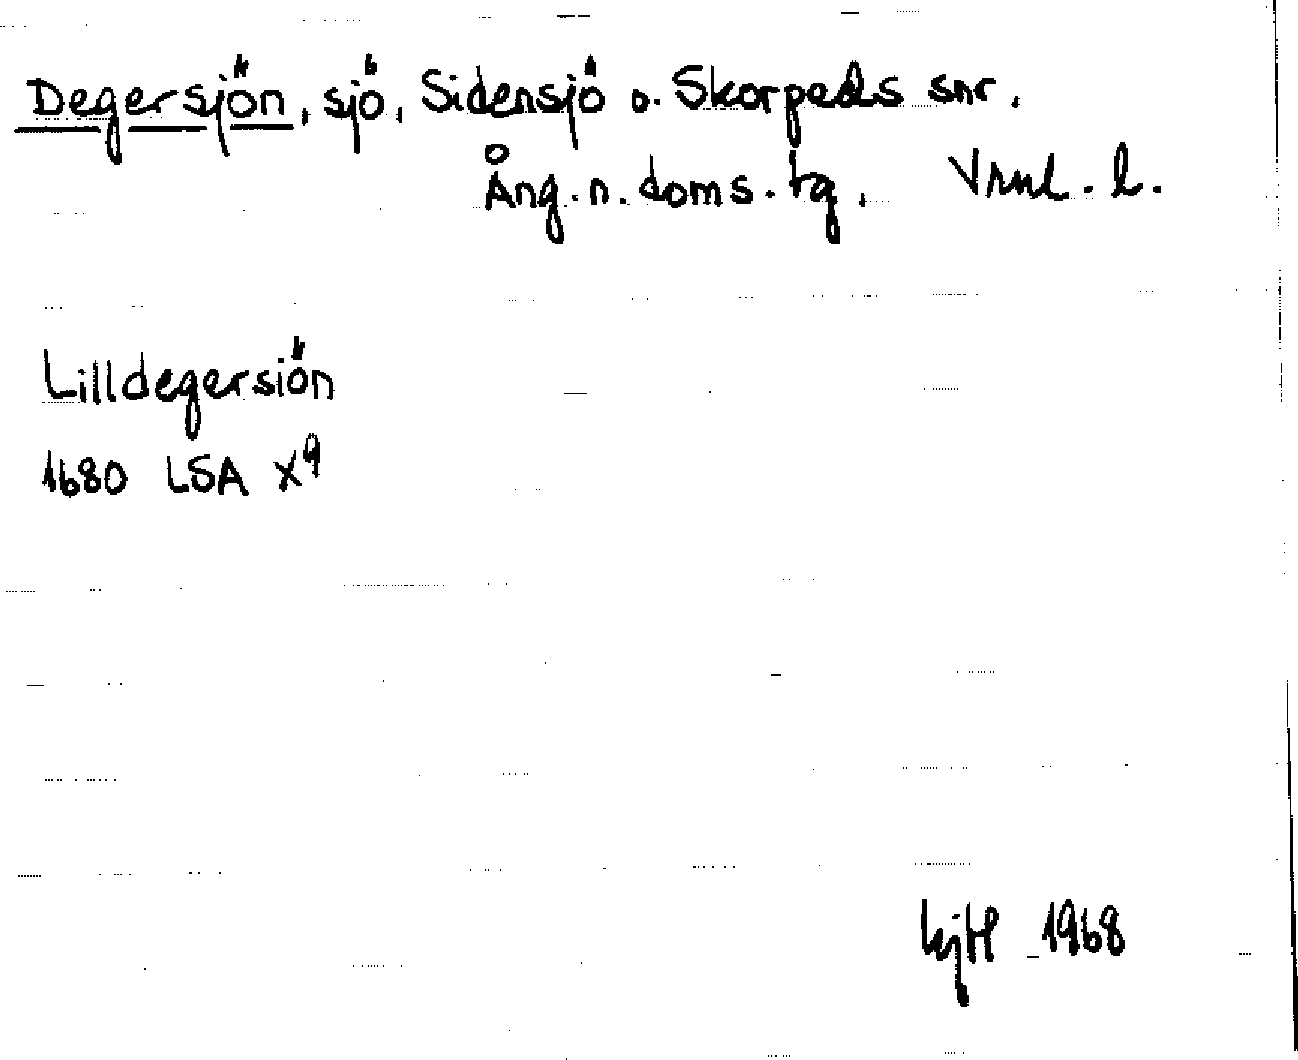 Degersjön, sjö, Sidensjö o. Skorpeds snr.
Ång. n. doms. tg. Vrnl. l.
Lilldegersiön
1680 LSA X9
1968